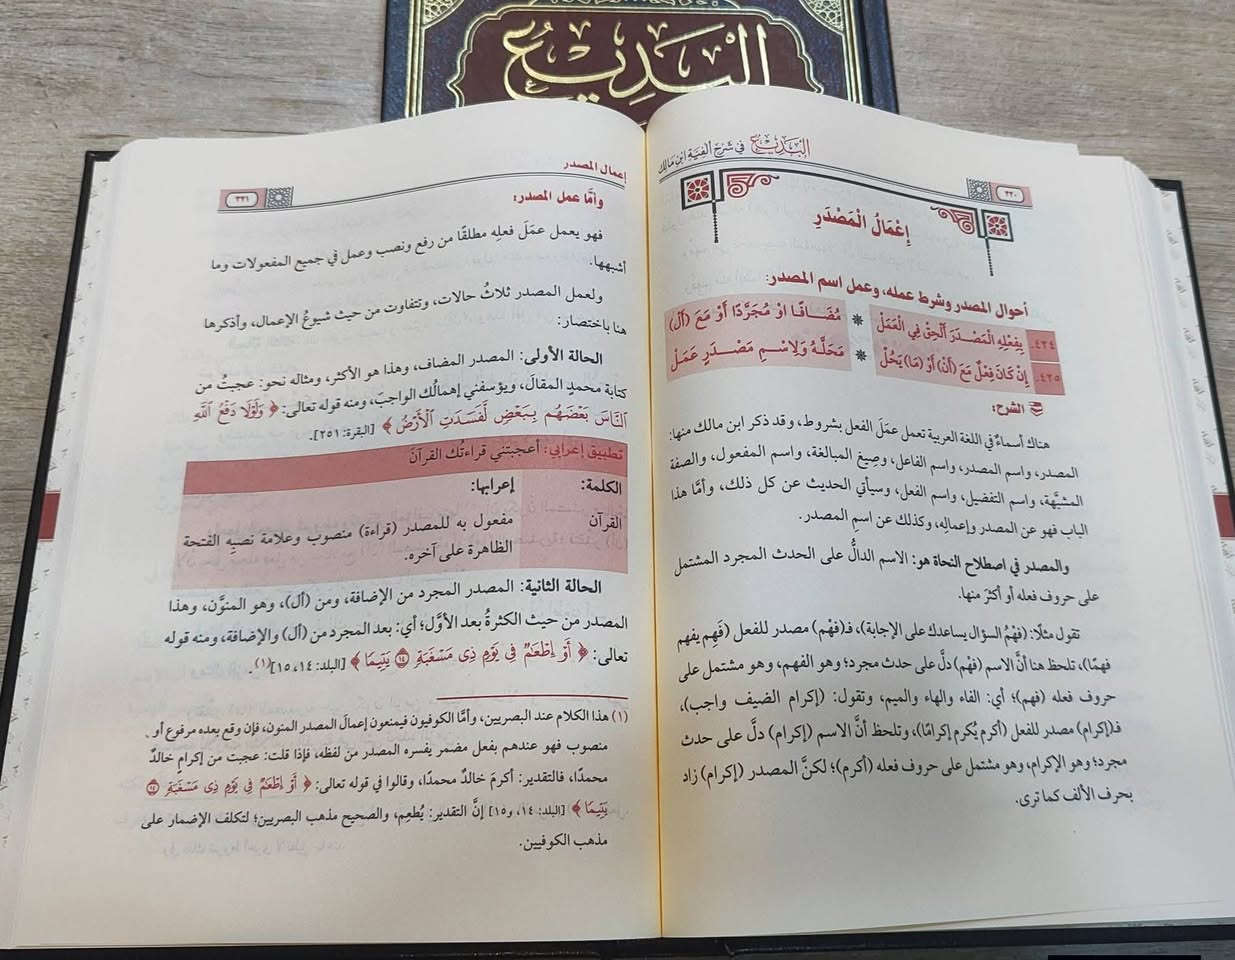 البديع
البديع في شرح ألفية ابن مالك
٣٢٠
إِعْمَالُ الْمَصْدَرِ
أحوال المصدر وشرط عمله، وعمل اسم المصدر:
٤٢٤. بِفِعْلِهِ الْمَصْدَرَ أَلْحِقْ فِي الْعَمَلْ * مُضَافًا اوْ مُجَرَّدًا أَوْ مَعَ (أَلْ)
٤٢٥. إِنْ كَانَ فِعْلٌ مَعَ (أَنْ) أَوْ (مَا) يَحُلّْ * مَحَلَّهُ وَلِاسْمِ مَصْدَرٍ عَمَلْ
الشرح:
هناك أسماءٌ في اللغة العربية تعمل عمَلَ الفعل بشروط، وقد ذكر ابن مالك منها:
المصدر، واسم المصدر، واسم الفاعل، وصِيغ المبالغة، واسم المفعول، والصفة
المشبَّهة، واسم التفضيل، واسم الفعل، وسيأتي الحديث عن كل ذلك، وأمَّا هذا
الباب فهو عن المصدر وإعمالِه، وكذلك عن اسمِ المصدر.
والمصدر في اصطلاح النحاة هو: الاسم الدالُّ على الحدث المجرد المشتمل
على حروف فعله أو أكثرَ منها.
تقول مثلًا: (فَهْمُ السؤال يساعدك على الإجابة)، فـ(فَهْم) مصدر للفعل (فَهِم يفهم
فهمًا)، تلحظ هنا أنَّ الاسم (فَهْم) دلَّ على حدث مجرد؛ وهو الفهم، وهو مشتمل على
حروف فعله (فهم)؛ أي: الفاء والهاء والميم، وتقول: (إكرام الضيف واجب)،
فـ(إكرام) مصدر للفعل (أكرم يُكرِم إكرامًا)، وتلحظ أنَّ الاسم (إكرام) دلَّ على حدث
مجرد؛ وهو الإكرام، وهو مشتمل على حروف فعله (أكرم)؛ لكنَّ المصدر (إكرام) زاد
بحرف الألف كما ترى.
إعمال المصدر
٣٢١
وأمَّا عمل المصدر:
فهو يعمل عمَلَ فعلِه مطلقًا من رفع ونصب وعمل في جميع المفعولات وما
أشبهها.
ولعمل المصدر ثلاثُ حالات، وتتفاوت من حيث شيوعُ الإعمال، وأذكرها
هنا باختصار:
الحالة الأولى: المصدر المضاف، وهذا هو الأكثر، ومثاله نحو: عجبتُ من
كتابة محمدٍ المقالَ، ويؤسفني إهمالُك الواجبَ، ومنه قوله تعالى: ﴿وَلَوْلَا دَفْعُ ٱللَّهِ
ٱلنَّاسَ بَعْضَهُم بِبَعْضٍ لَّفَسَدَتِ ٱلْأَرْضُ﴾ [البقرة: ٢٥١].
تطبيق إعرابي: أعجبتني قراءتُك القرآنَ
الكلمة: إعرابها:
القرآن مفعول به للمصدر (قراءة) منصوب وعلامة نصبِه الفتحة
الظاهرة على آخره.
الحالة الثانية: المصدر المجرد من الإضافة، ومن (أل)، وهو المنوَّن، وهذا
المصدر من حيث الكثرةُ بعد الأوَّل؛ أي: بعد المجرد من (أل) والإضافة، ومنه قوله
تعالى: ﴿أَوْ إِطْعَٰمٌ فِى يَوْمٍ ذِى مَسْغَبَةٍ ١٤ يَتِيمًا﴾ [البلد: ١٤، ١٥](١).
(١) هذا الكلام عند البصريين، وأمَّا الكوفيون فيمنعون إعمالَ المصدر المنون، فإن وقع بعده مرفوع أو
منصوب فهو عندهم بفعل مضمر يفسره المصدر من لفظه، فإذا قلت: عجبت من إكرامٍ خالدٌ
محمدًا، فالتقدير: أكرمَ خالدٌ محمدًا، وقالوا في قوله تعالى: ﴿أَوْ إِطْعَٰمٌ فِى يَوْمٍ ذِى مَسْغَبَةٍ ١٤
يَتِيمًا﴾ [البلد: ١٤، و١٥] إنَّ التقدير: يُطعِم، والصحيح مذهب البصريين؛ لتكلف الإضمار على
مذهب الكوفيين.